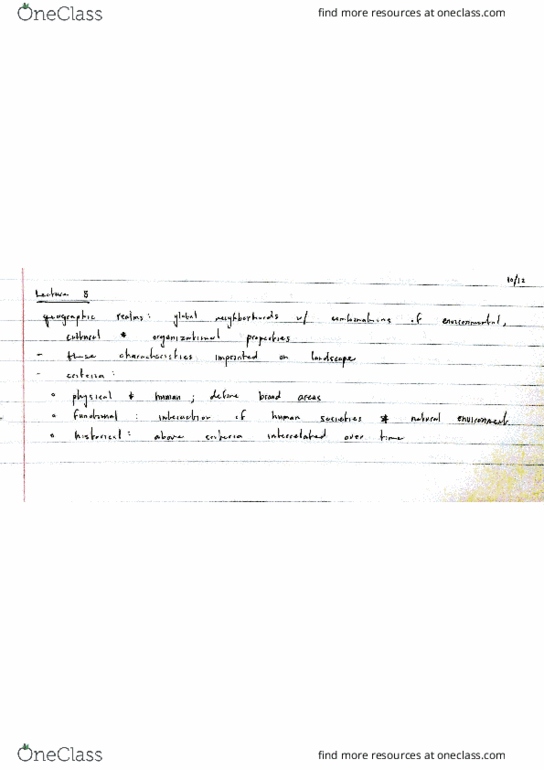 OneClass find more resources at oneclass.com
10/12
Lecture 8
geographic realms: global neighborhoods w/ combinations of environmental,
cultural & organizational properties
- these characteristics imprinted on landscape
- criteria:
◦ physical & human ; define broad areas
◦ functional : interaction of human societies & natural environment.
◦ historical : above criteria interrelated over time
OneClass find more resources at oneclass.com